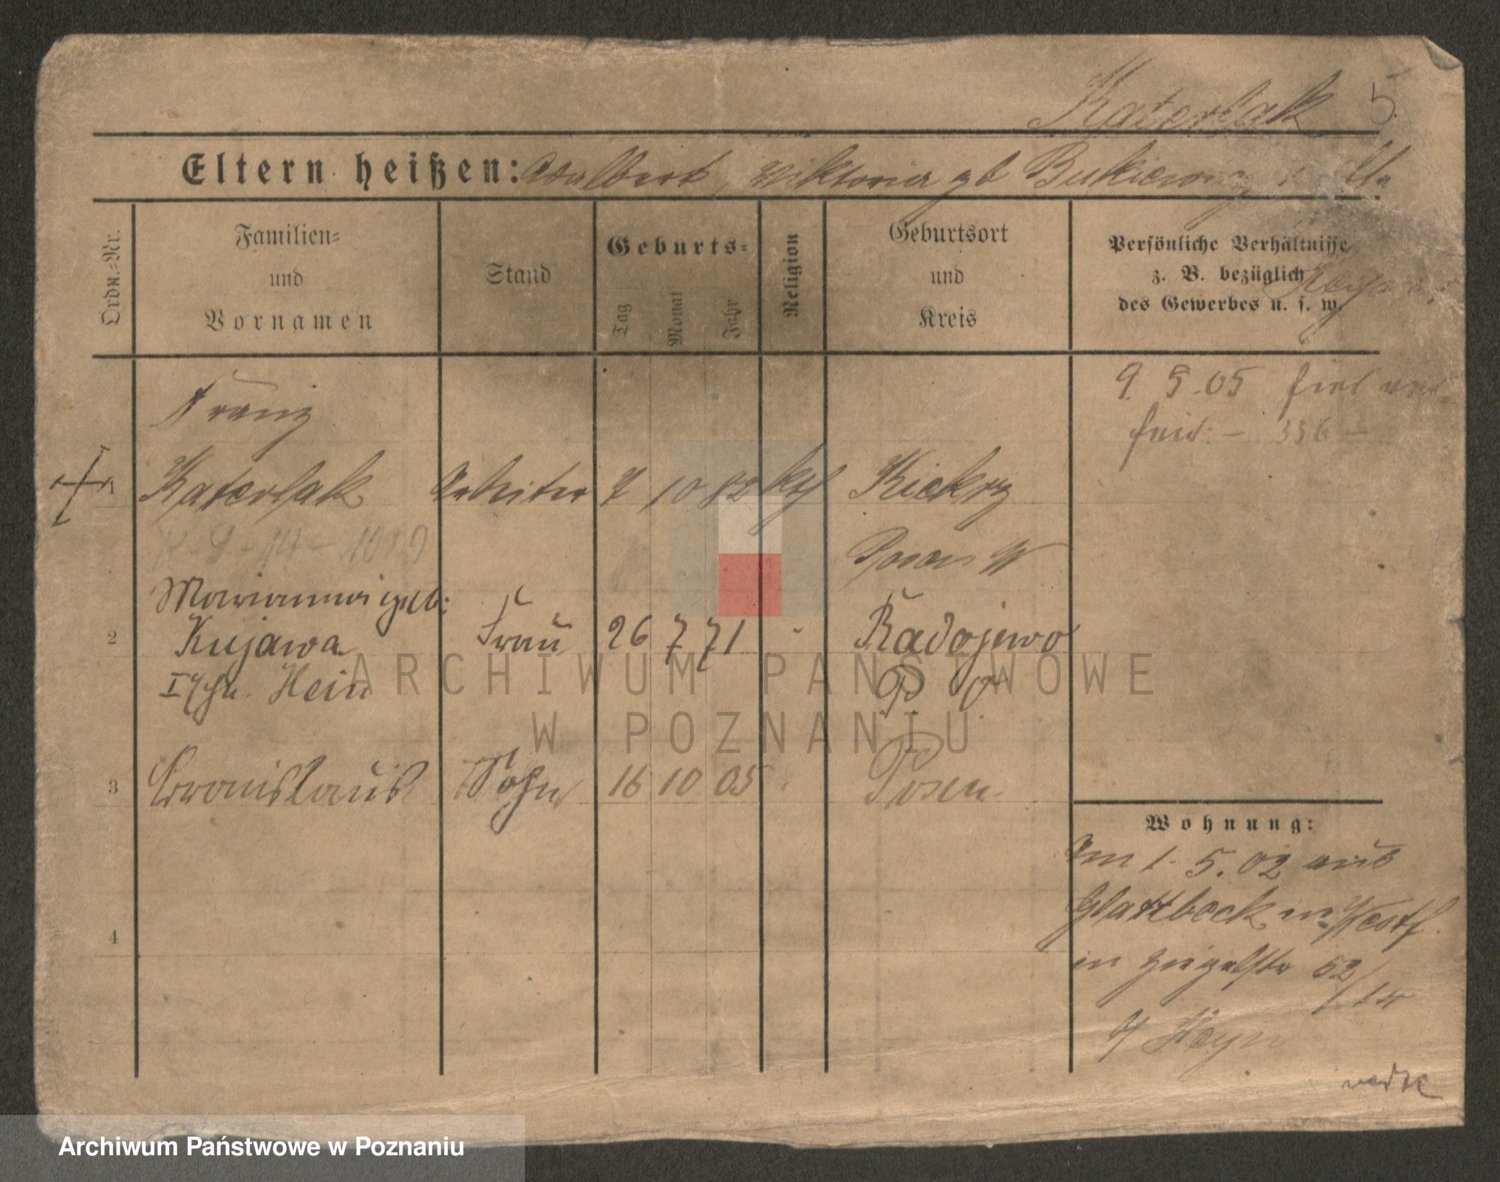 Katerlak 5.
Eltern heißen: Adalbert, Viktoria gb
Ordn.=Nr.
Familien=
und
Vornamen
Stand
Geburts=
Tag
Monat
Jahr
Religion
Geburtsort
und
Kreis
Persönliche Verhältnisse
z. B. bezüglich
des Gewerbes u. s. w.
9. 5. 05
Franz
1 Katerlak Arbeiter 7 10 82 kth Kiekrz
Posen W
Marianna geb:
2 Kujawa Frau 26 7 71 Radojewo
Hein P O
3 Bronislaus Sohn 16 10 05 Posen
4
Wohnung:
Am 1. 5. 02 aus
in Westf.
in 52/
b/ Heyn
ARCHIWUM PAŃSTWOWE
W POZNANIU
Archiwum Państwowe w Poznaniu